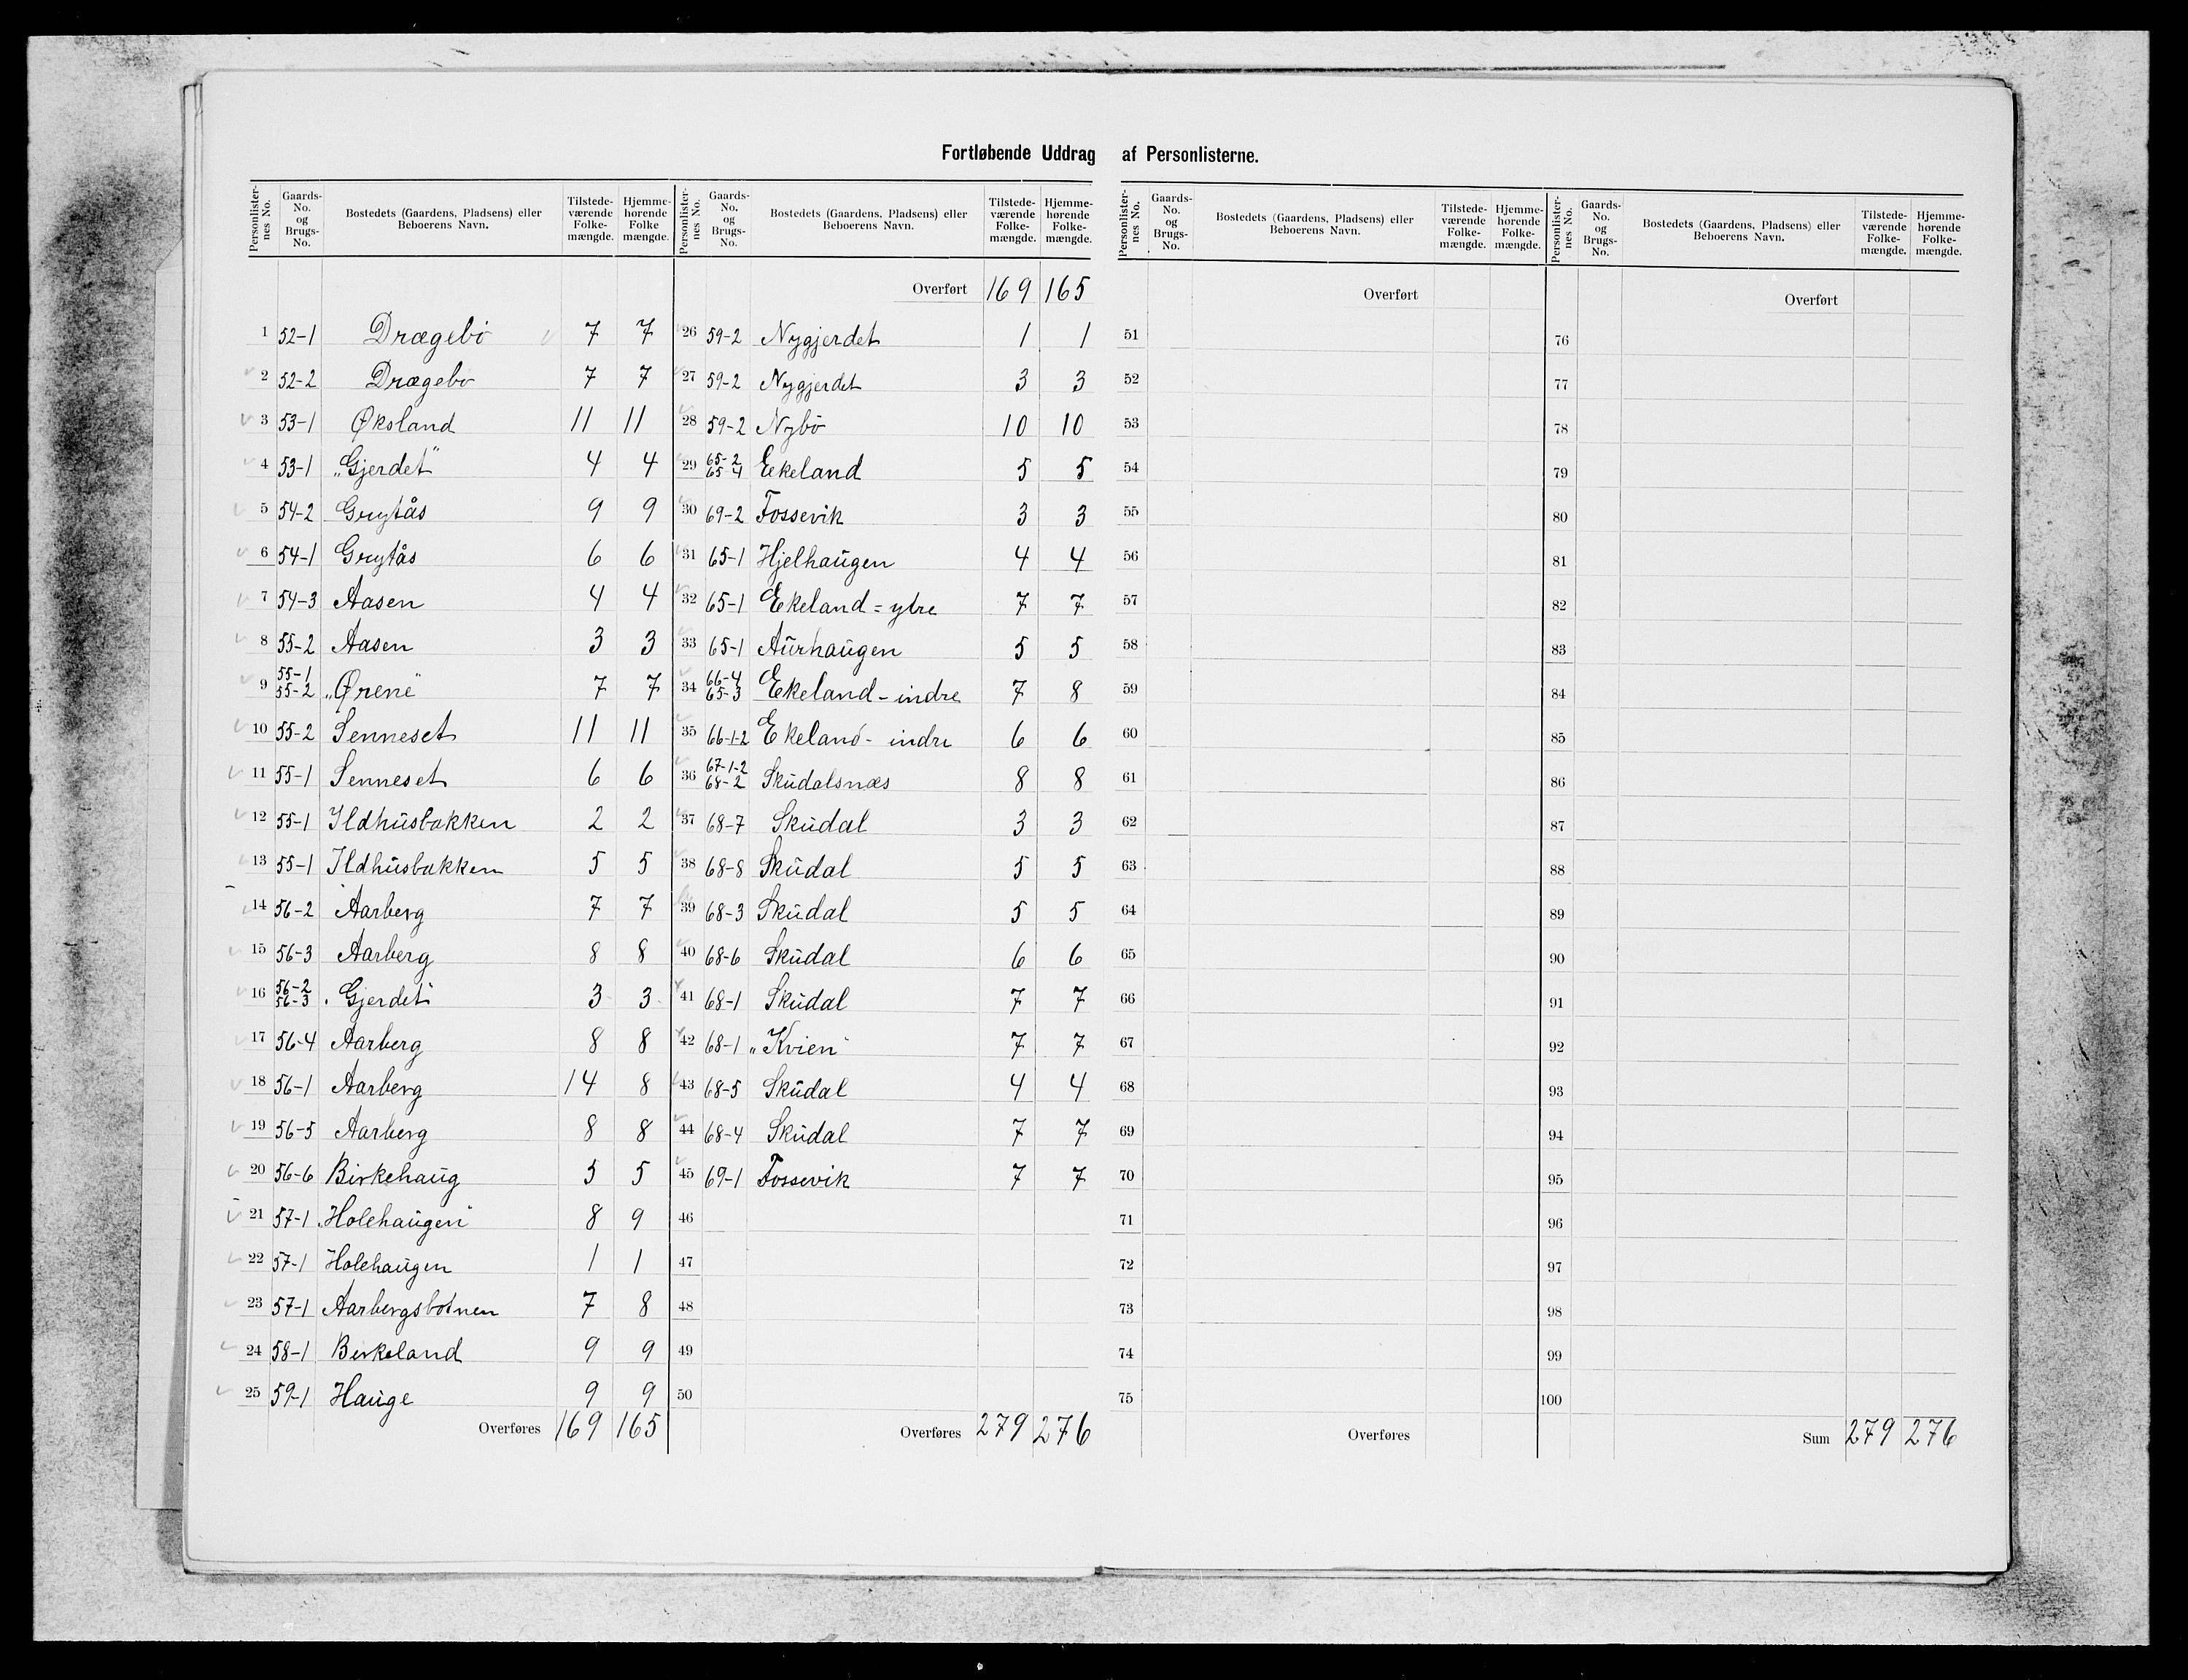 Fortløbende Uddrag af Personlisterne.
Personlisternes No. Gaards-No. og Brugs-No. Bostedets (Gaardens, Pladsens) eller Beboerens Navn. Tilstedeværende Folkemængde. Hjemmehørende Folke mængde.
1 52-1 Drægebö 7 7
2 52-2 Drægebö 7 7
3 53-1 Øksland 11 11
4 53-1 „Gjerdet" 4 4
5 54-2 Grytås 9 9
6 54-1 Grytås 6 6
7 54-3 Aasen 4 4
8 55-2 Aasen 3 3
9 55-1 55-2 „Ørene" 7 7
10 55-2 Senneset 11 11
11 55-1 Senneset 6 6
12 55-1 Ildhusbakken 2 2
13 55-1 Ildhusbakken 5 5
14 56-2 Aarberg 7 7
15 56-3 Aarberg 8 8
16 56-2 56-3 „Gjerdet" 3 3
17 56-4 Aarberg 8 8
18 56-1 Aarberg 14 8
19 56-5 Aarberg 8 8
20 56-6 Birkehaug 5 5
21 57-1 „Holehaugen" 8 9
22 57-1 Holehaugen 1 1
23 57-1 Aarbergsbotnen 7 8
24 58-1 Birkeland 9 9
25 59-1 Hauge 9 9
Overføres 169 165
Personlisternes No. Gaards-No. og Brugs-No. Bostedets (Gaardens, Pladsens) eller Beboerens Navn. Tilstedeværende Folkemængde. Hjemmehørende Folkemængde.
Overført 169 165
26 59-2 Nygjerdet 1 1
27 59-2 Nygjerdet 3 3
28 59-2 Nybö 10 10
29 65-2 65-4 Eekeland 5 5
30 69-2 Fossevik 3 3
31 65-1 Hjelhaugen 4 4
32 65-1 Ekeland = ytre 7 7
33 65-1 Aurhaugen 5 5
34 66-4 65-3 Ekeland - indre 7 8
35 66-1-2 Ekeland - indre 6 6
36 67-1-2 68-2 Skudalsnæs 8 8
37 68-7 Skudal 3 3
38 68-8 Skudal 5 5
39 68-3 Skudal 5 5
40 68-6 Skudal 6 6
41 68-1 Skudal 7 7
42 68-1 „Kvien" 7 7
43 68-5 Skudal 4 4
44 68-4 Skudal 7 7
45 69-1 Fossevik 7 7
46
47
48
49
50
Overføres 279 276
Personlisternes No. Gaards-No. og Brugs-No. Bostedets (Gaardens, Pladsens) eller Beboerens Navn. Tilstedeværende Folkemængde. Hjemmehørende Folkemængde.
Overført
51
52
53
54
55
56
57
58
59
60
61
62
63
64
65
66
67
68
69
70
71
72
73
74
75
Overføres
Personlisternes No. Gaards-No. og Brugs-No. Bostedets (Gaardens, Pladsens) eller Beboerens Navn. Tilstedeværende Folkemængde. Hjemmehørende Folkemængde.
Overført
76
77
78
79
80
81
82
83
84
85
86
87
88
89
90
91
92
93
94
95
96
97
98
99
100
Sum 279 276